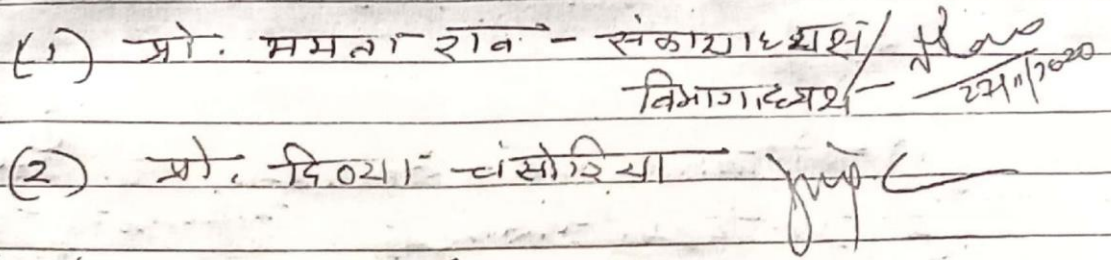 (1) प्रो. ममता राव - संकायाध्यक्ष/
विभागाध्यक्ष - 27/11/2020
(2) प्रो. दिव्या चंसोरिया